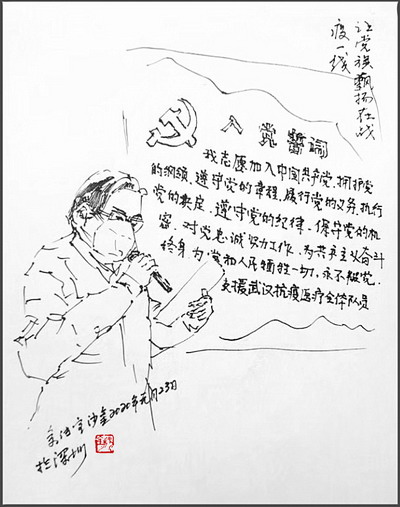 让党旗飘扬在战
疫一线
入党誓词
我志愿加入中国共产党,拥护党
的纲领、遵守党的章程,履行党的义务,执行
党的决定,遵守党的纪律,保守党的机
密,对党忠诚,努力工作,为共产主义奋斗
终身,为党和人民牺牲一切,永不叛党.
支援武汉抗疫医疗全体队员
2020年元月23日
於深圳